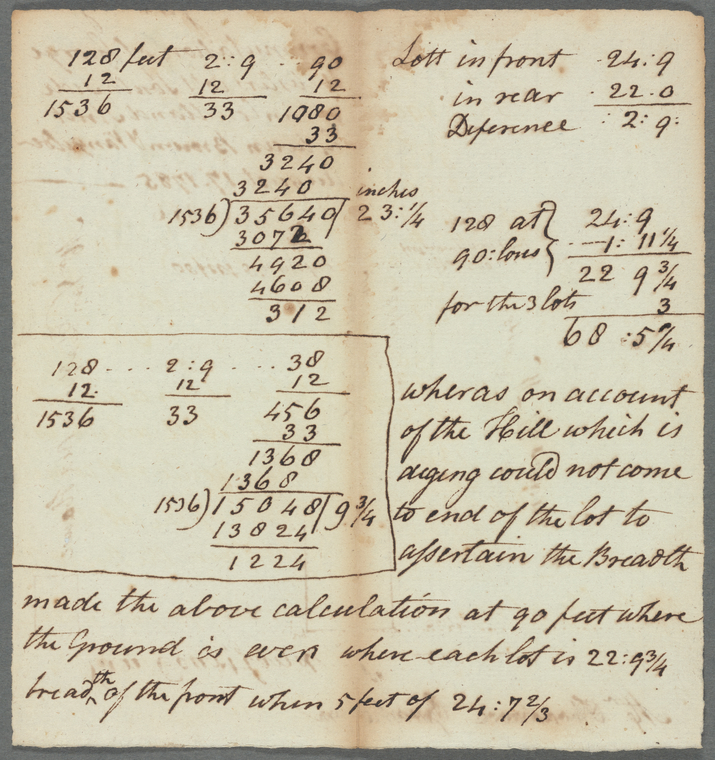 128 feet 2:9 .. 90
12 12 12
1536 33 1080
33
3240
3240 inches
1536)35640( 23:1/4
3072
4920
4608
312
Lott in front 24:9
in rear 22.0
Diference : 2:9:
128 at 24:9
90:lons 1: 11 1/4
22 9 3/4
for the 3 lots 3
68 :5 9/4
128 ... 2:9 ... 38
12: 12 12
1536 33 456
33
1368
1368
1536)15048(9 3/4
13824
1224
wheras on account
of the Hill which is
diging could not come
to end of the lot to
assertain the Breadth
made the above calculation at 90 feet where
the Ground is even where each lot is 22:9 3/4
breadth of the front when 5 feet of 24:7 2/3